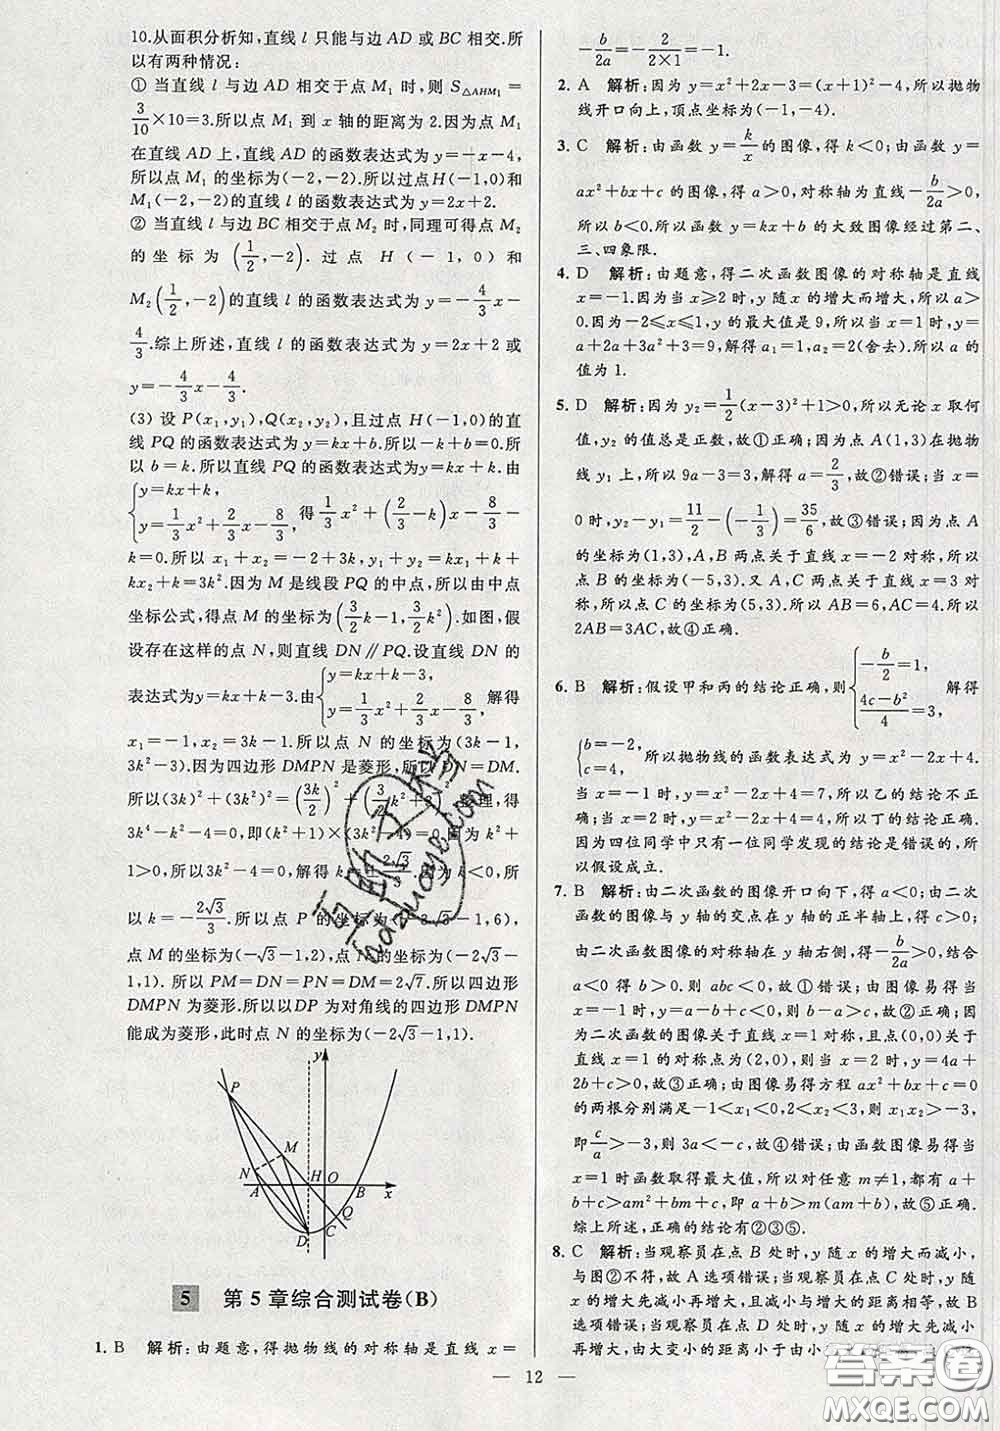 10.从面积分析知,直线 l 只能与边 AD 或 BC 相交.所
以有两种情况:
① 当直线 l 与边 AD 相交于点 M₁ 时,则 S△AHM₁ =
3/10 ×10=3.所以点 M₁ 到 x 轴的距离为 2.因为点 M₁
在直线 AD 上,直线 AD 的函数表达式为 y=-x-4,
所以点 M₁ 的坐标为(-2,-2).所以过点H(-1,0)和
M₁(-2,-2)的直线 l 的函数表达式为 y=2x+2.
② 当直线 l 与边 BC 相交于点 M₂ 时,同理可得点 M₂
的坐标为(1/2,-2). 过点 H(-1,0)和
M₂(1/2,-2)的直线 l 的函数表达式为 y=-4/3x-
4/3.综上所述,直线 l 的函数表达式为 y=2x+2 或
y=-4/3x-4/3.
(3) 设 P(x₁,y₁),Q(x₂,y₂),且过点 H(-1,0)的直
线 PQ 的函数表达式为 y=kx+b.所以-k+b=0.所
以 b=k.所以直线 PQ 的函数表达式为 y=kx+k.由
{y=kx+k, y=1/3x²+2/3x-8/3, 得 1/3x²+(2/3-k)x-8/3-
k=0.所以 x₁+x₂=-2+3k,y₁+y₂=kx₁+k+
kx₂+k=3k².因为 M 是线段 PQ 的中点,所以由中点
坐标公式,得点 M 的坐标为(3/2k-1,3/2k²).如图,假
设存在这样的点 N,则直线 DN∥PQ.设直线 DN 的
表达式为y=kx+k-3.由{y=kx+k-3, y=1/3x²+2/3x-8/3, 解得
x₁=-1,x₂=3k-1.所以点 N 的坐标为(3k-1,
3k²-3).因为四边形 DMPN 是菱形,所以DN=DM.
所以(3k)²+(3k²)²=(3k/2)²+(3/2k²+3)².整理,得
3k⁴-k²-4=0,即(k²+1)×(3k²-4)=0.因为 k²+
1>0,所以3k²-4=0,解得 k=±2√3/3.因为 k<0,所
以 k=-2√3/3.所以点 P 的坐标为(-3√3-1,6),
点 M 的坐标为(-√3-1,2),点 N 的坐标为(-2√3-
1,1). 所以 PM=DN=PN=DM=2√7.所以四边形
DMPN 为菱形.所以以DP 为对角线的四边形 DMPN
能成为菱形,此时点 N 的坐标为(-2√3-1,1).
y
P
M
N
H O
A B x
Q
D C
5 第 5 章综合测试卷(B)
1. B 解析:由题意,得抛物线的对称轴是直线 x=
-b/2a=-2/(2×1)=-1.
2. A 解析:因为 y=x²+2x-3=(x+1)²-4,所以抛物
线开口向上,顶点坐标为(-1,-4).
3. C 解析:由函数 y=k/x 的图像,得 k<0;由函数 y=
ax²+bx+c 的图像,得 a>0,对称轴为直线-b/2a>0,
所以 b<0.所以函数 y=kx+b 的大致图像经过第二、
三、四象限.
4. D 解析:由题意,得二次函数图像的对称轴是直线
x=-1.因为当 x≥2 时,y 随 x 的增大而增大,所以 a>
0.因为-2≤x≤1,y 的最大值是 9,所以当 x=1 时,y=
a+2a+3a²+3=9,解得 a₁=1,a₂=2(舍去).所以 a 的
值为 1.
5. D 解析:因为 y₂=1/2(x-3)²+1>0,所以无论 x 取何
值,y₂ 的值总是正数,故①正确;因为点 A(1,3)在抛物
线 y₁ 上,所以 9a-3=3,解得 a=2/3,故②错误;当 x=
0 时,y₂-y₁=11/2-(-1/3)=35/6,故③错误;因为点 A
的坐标为(1,3),A,B 两点关于直线 x=-2 对称,所以
点 B 的坐标为(-5,3).又 A,C 两点关于直线 x=3 对
称,所以点 C 的坐标为(5,3).所以 AB=6,AC=4.所以
2AB=3AC,故④正确.
6. B 解析:假设甲和丙的结论正确,则{-b/2=1, (4c-b²)/4=3, 解得
{b=-2, c=4, 所以抛物线的函数表达式为 y=x²-2x+4.
当 x=-1 时,y=x²-2x+4=7,所以乙的结论不正
确;当 x=2 时,y=x²-2x+4=4,所以丁的结论正确.
因为四位同学中只有一位同学发现的结论是错误的,所
以假设成立.
7. B 解析:由二次函数的图像开口向下,得 a<0;由二次
函数的图像与 y 轴的交点在 y 轴的正半轴上,得 c>0;
由二次函数图像的对称轴在 y 轴右侧,得-b/2a>0,结合
a<0 得 b>0. 所以 abc<0,故①错误;由图像易得当
x=-1时,y=a-b+c<0,所以b-a>c,故②正确;因
为二次函数的图像关于直线 x=1 对称,且点(0,0)关于
直线 x=1 的对称点为(2,0),所以当 x=2 时,y=4a+
2b+c>0,故③正确;由图像易得方程 ax²+bx+c=0
的两根分别满足-1<x₁<0,2<x₂<3,则 x₁x₂>-3,
即c/a>-3,则 3a<-c,故④错误;由函数图像易得当
x=1 时函数取得最大值,所以对任意 m≠1,都有 a+
b+c>am²+bm+c,即 a+b>m(am+b),故⑤正确.
综上所述,正确的结论有②③⑤.
8. C 解析:当观察员在点 B 处时,y 随 x 的增大而减小,
与图②不符,故 A 选项错误;当观察员在点 C 处时,y 随
x 的增大先增大再减小,且减小到最小值 0,故 B
选项错误;当观察员在点 D 处时,y 随 x 的增大先减小
再增大,由大变小的距离小于由小
— 12 —
答案圈
MXQE.COM